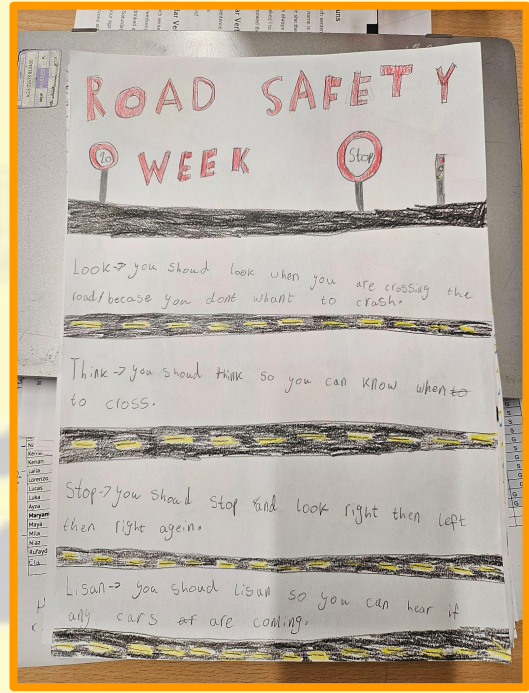 ROAD SAFETY
20 WEEK Stop
Look→ you shoud look when you are crossing the
road/becase you dont whant to crash.
Think→ you shoud think so you can know when to
to cross.
Stop→ you shoud Stop and look right then left
then right agein.
Lisan→ you shoud Lisan so you can hear if
any cars are coming.
Kenan
Laila
Lorenzo
Lucas
Luka
Ayza
Maryam
Maya
Mila
Niaz
Rufayd